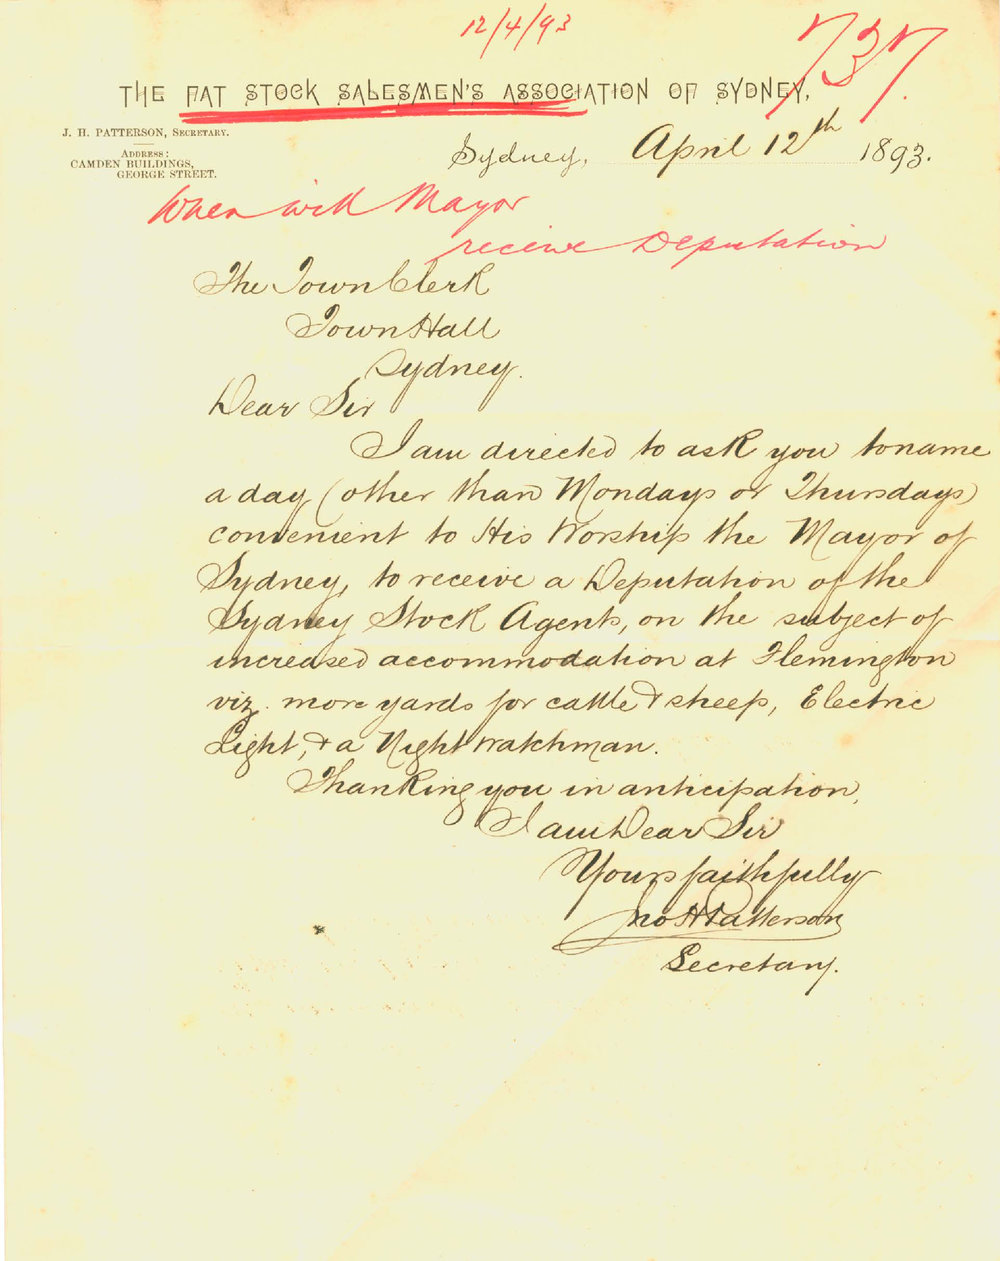 12/4/93
737.
THE FAT STOCK SALESMEN'S ASSOCIATION OF SYDNEY,
J. H. PATTERSON, SECRETARY.
ADDRESS:
CAMDEN BUILDINGS,
GEORGE STREET.
Sydney, April 12th 1893.
When will Mayor
receive Deputation
The Town Clerk
Town Hall
Sydney.
Dear Sir
I am directed to ask you to name
a day (other than Mondays or Thursdays)
convenient to His Worship the Mayor of
Sydney, to receive a Deputation of the
Sydney Stock Agents, on the subject of
increased accommodation at Flemington
viz. more yards for cattle & sheep, Electric
Light, & a Night watchman.
Thanking you in anticipation,
I am Dear Sir
Yours faithfully
Jno H Patterson
Secretary.